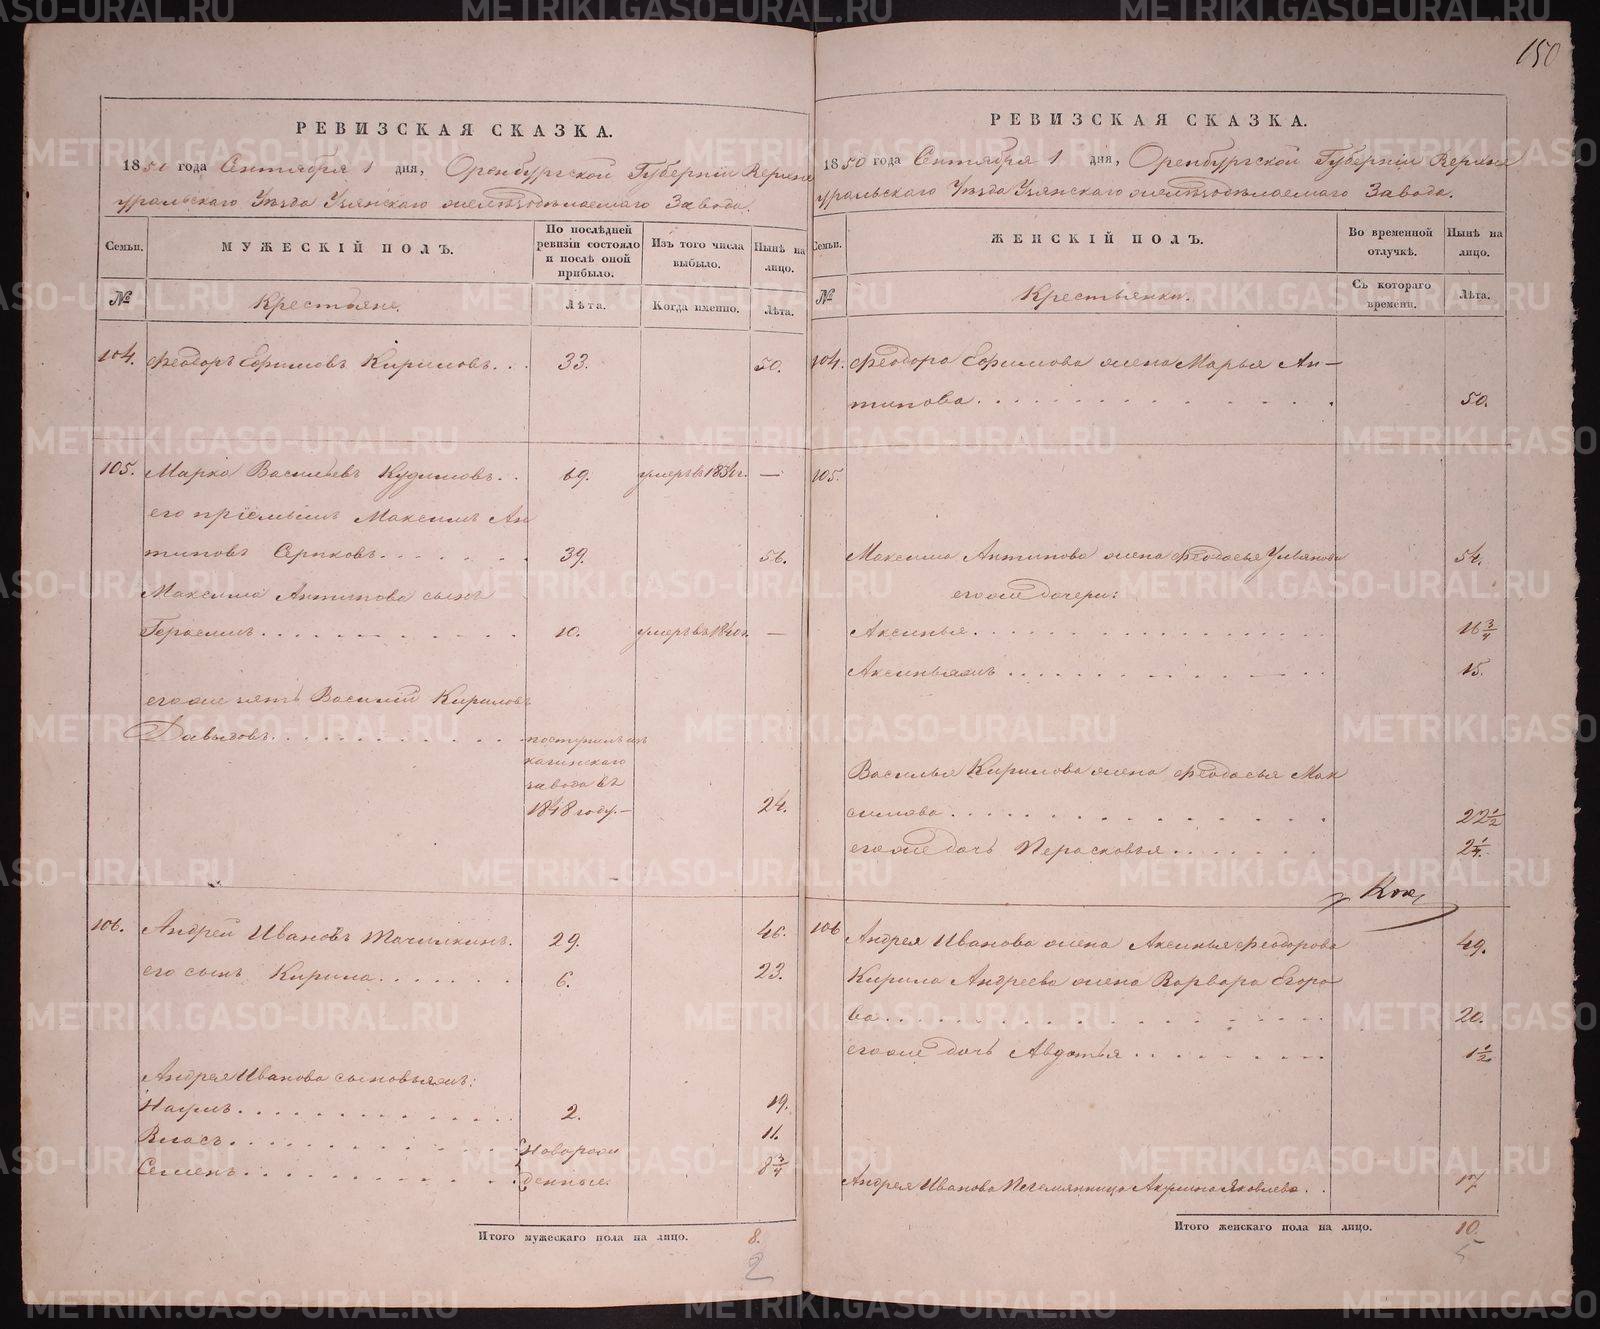 150
РЕВИЗСКАЯ СКАЗКА.
1850 года Сентября 1 дня, Оренбургской Губерніи Верхне
уральскаго Уѣзда Узянскаго желѣзодѣлаемаго Завода.
Семьи.
МУЖЕСКІЙ ПОЛЪ.
По послѣдней ревизіи состояло и послѣ оной прибыло.
Изъ того числа выбыло.
Нынѣ на лицо.
№
Крестьяне.
Лѣта.
Когда именно.
Лѣта.
104. Феодоръ Ефимовъ Кириловъ. . . 33. 50.
105. Марко Васильевъ Кудимовъ. . 69. умеръ въ 1834 г. —
его пріемышъ Максимъ Ан
типовъ Серковъ. . . . . . 39. 56.
Максима Антипова сынъ
Герасимъ. . . . . . . . . . 10. умеръ въ 1840 г. —
его же зять Василій Кириловъ
Давыдовъ. . . . . . . . . . поступилъ изъ
кагинскаго
завода въ
1848 году.— 24.
106. Андрей Ивановъ Точилкинъ. 29. 46.
его сынъ Кирила. . . . . . 6. 23.
Андрея Иванова сыновья жъ:
Наумъ. . . . . . . . . . 2. 19.
Власъ. . . . . . . . . . Новорож 11.
Семенъ. . . . . . . . . . денные 8 3/4
Итого мужескаго пола на лицо. 8.
2
РЕВИЗСКАЯ СКАЗКА.
1850 года Сентября 1 дня, Оренбургской Губерніи Верхне
уральскаго Уѣзда Узянскаго желѣзодѣлаемаго Завода.
Семьи.
ЖЕНСКІЙ ПОЛЪ.
Во временной отлучкѣ.
Нынѣ на лицо.
№
Крестьянки.
Съ котораго времени.
Лѣта.
104. Феодора Ефимова жена Марья Ан—
типова. . . . . . . . . . 50.
105.
Максима Антипова жена Феодосья Ульянова 54.
его же дочери:
Аксинья. . . . . . . . . . 16 3/4
Аксинья жъ . . . . . . . . . . 15.
Василья Кирилова жена Феодосья Мак
симова. . . . . . . . . . 22 1/2
его же дочь Перасковья. . . . . . . 2 1/4.
106 Андрея Иванова жена Аксинья Феодорова 49.
Кирила Андреева жена Варвара Егоро
ва. . . . . . . . . . 20.
его же дочь Авдотья. . . . . . . . 1 1/2
Андрея Иванова Племянница Акулина Яковлева. . 17
Итого женскаго пола на лицо. 10.
5